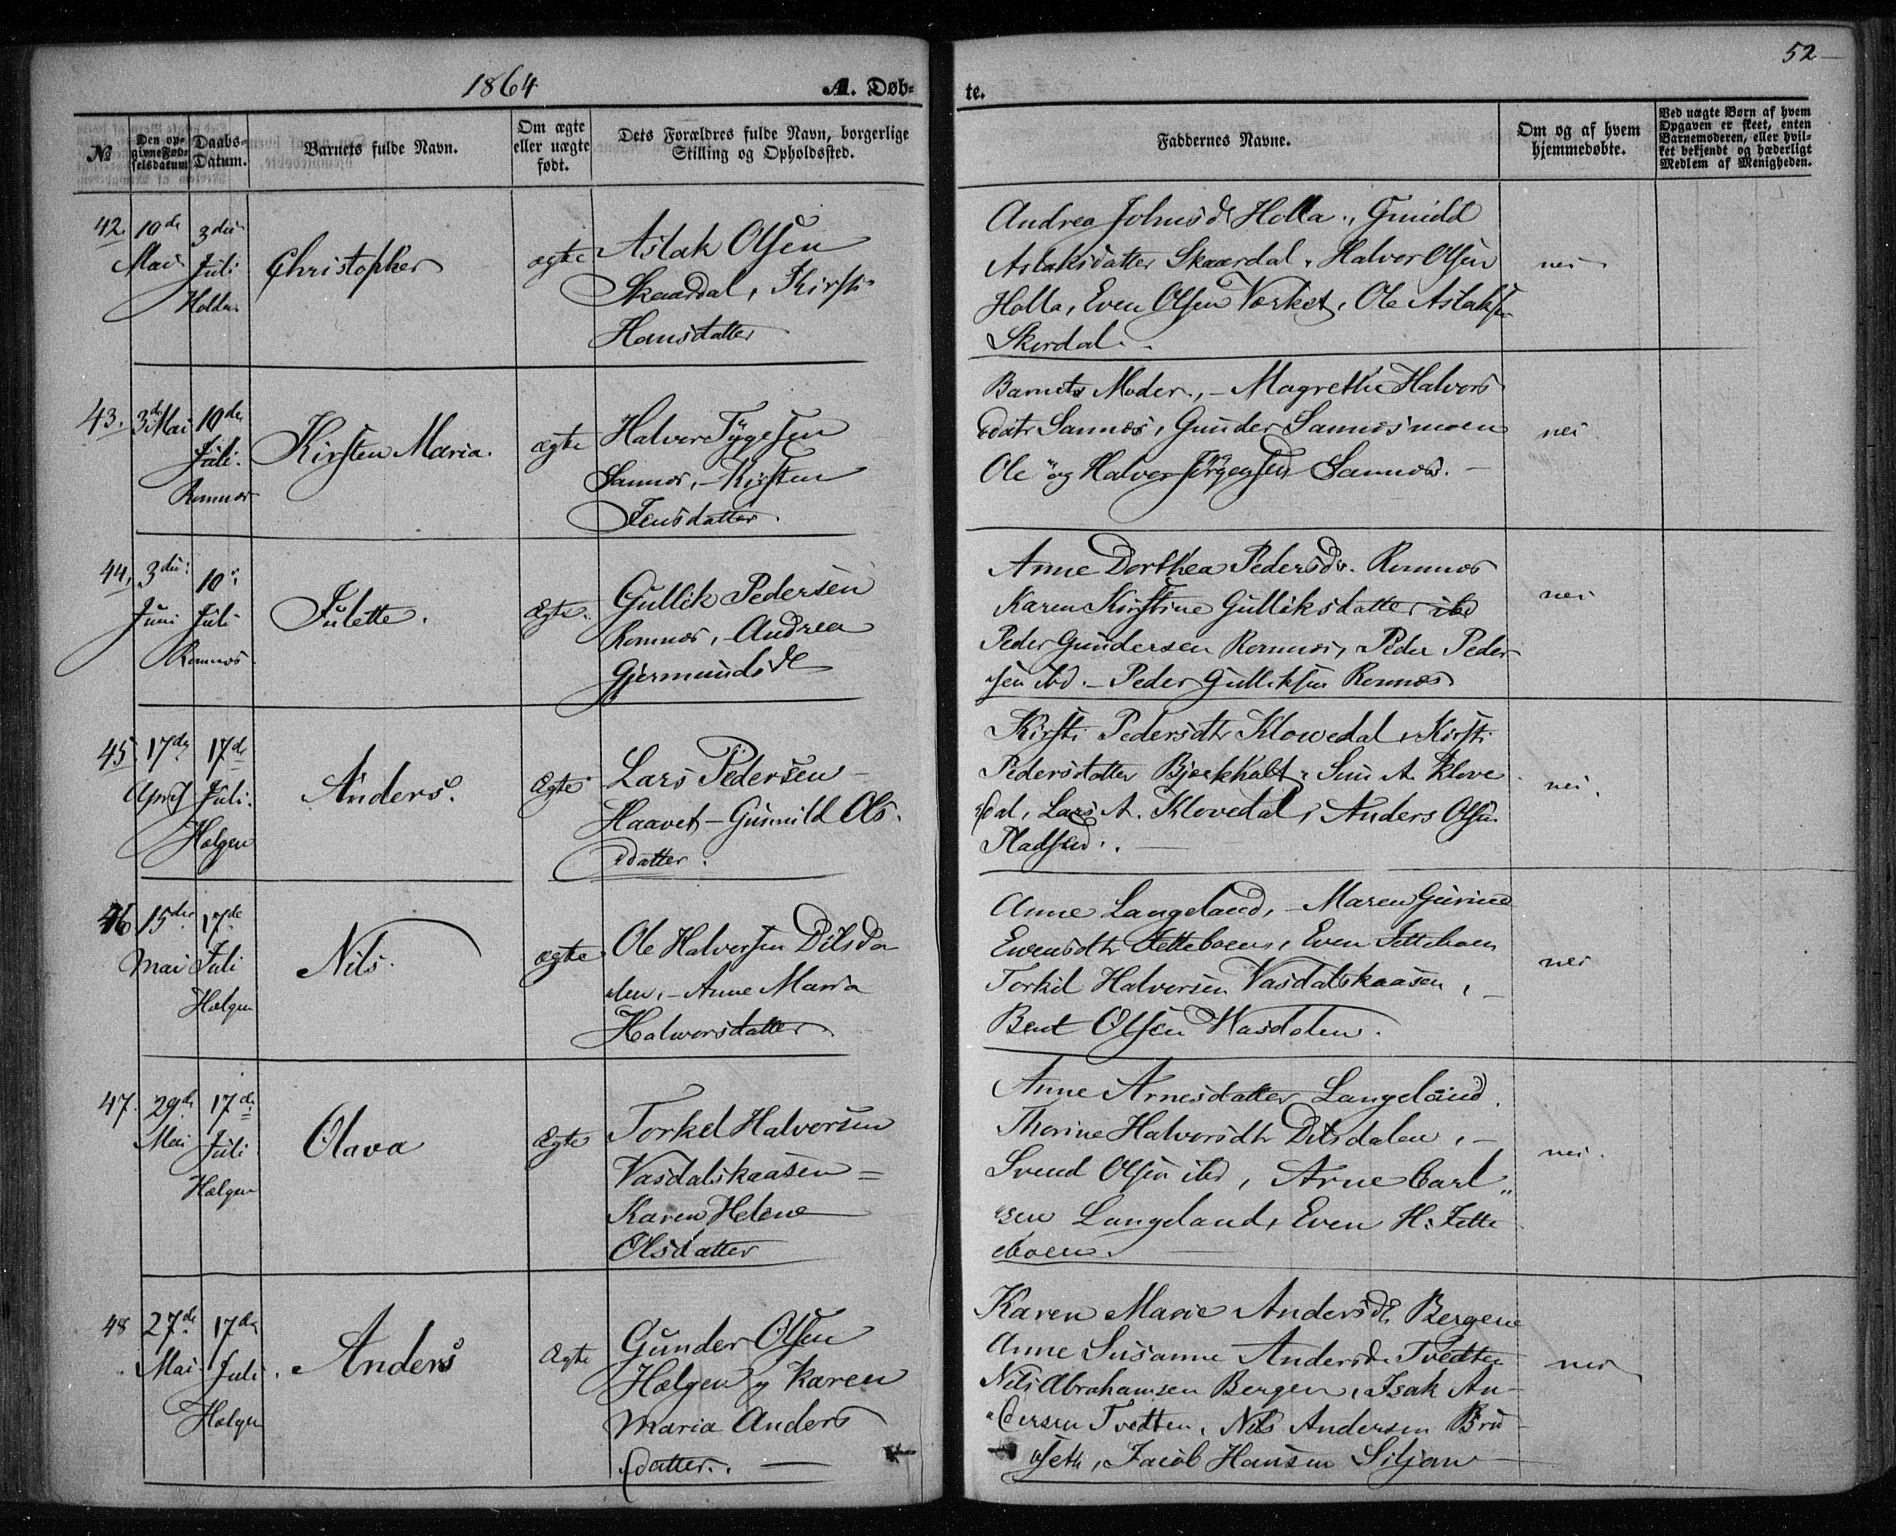 1864
A. Døb-
te.
52
№
Den op-
givne Fød-
selsdatum
Daabs-
Datum.
Barnets fulde Navn.
Om ægte
eller uægte
født.
Dets Forældres fulde Navn, borgerlige
Stilling og Opholdssted.
Faddernes Navne.
Om og af hvem
hjemmedøbte.
Ved uægte Børn af hvem
Opgaven er skeet, enten
Barnemoderen, eller hvil-
ket bekjendt og hæderligt
Medlem af Menigheden.
42. 10de
Mai
3die
Juli
Holden
Christopher
ægte
Aslak Olsen
Skaardal, Kirsti
Hansdatter
Andrea Johnsd Holla., Gunild
Aslaksdatter Skaardal, Halvor Olsen
Holla, Even Olsen Værket, Ole Aslaksen
Skordal.
nei
43. 3d Mai
10de
Juli.
Romnæs
Kirsten Maria.
ægte
Halvor Tygesen
Sannæs, - Kirsten
Jensdatter.
Barnets Moder., - Magrethe Halvors
datr Sannæs, Gunder Sannæsmoen
Ole og Halvor Jörgensen Sannæs. -
nei.
44, 3die
Juni
10de
Juli
Romnæs
Julette.
Ægte.
Gullik Pedersen
Romnæs, - Andrea
Gjermundsdr
Anne Dorthea Pedersdr. Romnæs
Karen Kirstine Gulliksdatter ibd
Peder Gundersen Romnæs, Peder Peder
sen ibd. - Peder Gulliksen Romnæs
nei
45. 17de
April
17de
Juli.
Helgen
Anders.
Ægte
Lars Pedersen -
Haavet - Gunnild Ols
datter.
Kirsti Pedersdtr Klowedal, Kirsti
Pedersdatter Bjerkholt, A. Klove
dal, Lars A. Klovedal, Anders Olsen
Pladsen.
nei.
46 15de
Mai
17de
Juli
Helgen
Nils.
ægte
Ole Halvorsen Dilsda
len, - Anne Maria
Halvorsdatter
Anne Langeland, - Maren Gurine
Evensdtr Jetteboen, Even Jetteboen
Torkil Halvorsen Vasdalskaasen, -
Bent Olsen Wasdalen.
nei
47. 29de
Mai
17de
Juli
Helgen
Olava
Ægte
Torkel Halvorsen
Vasdalskaasen =
Karen Helene
Olsdatter
Anne Arnesdatter Langeland.
Thorine Halvorsdtr Dilsdalen, -
Svend Olsen ibd, Arne Carl
sen Langeland, Even H. Jette
boen.
nei.
48 27de
Mai
17de
Juli.
Helgen
Anders
Ægte
Gunder Olsen
Helgen og Karen
Maria Anders
datter. -
Karen Marie Andersdr. Bergene
Anne Susanne Andersdr Tvedten
Nils Abrahamsen Bergen, Isak An-
dersen Tvedten, Nils Andersen Bru
seth, Jacob Hansen Siljan
nei